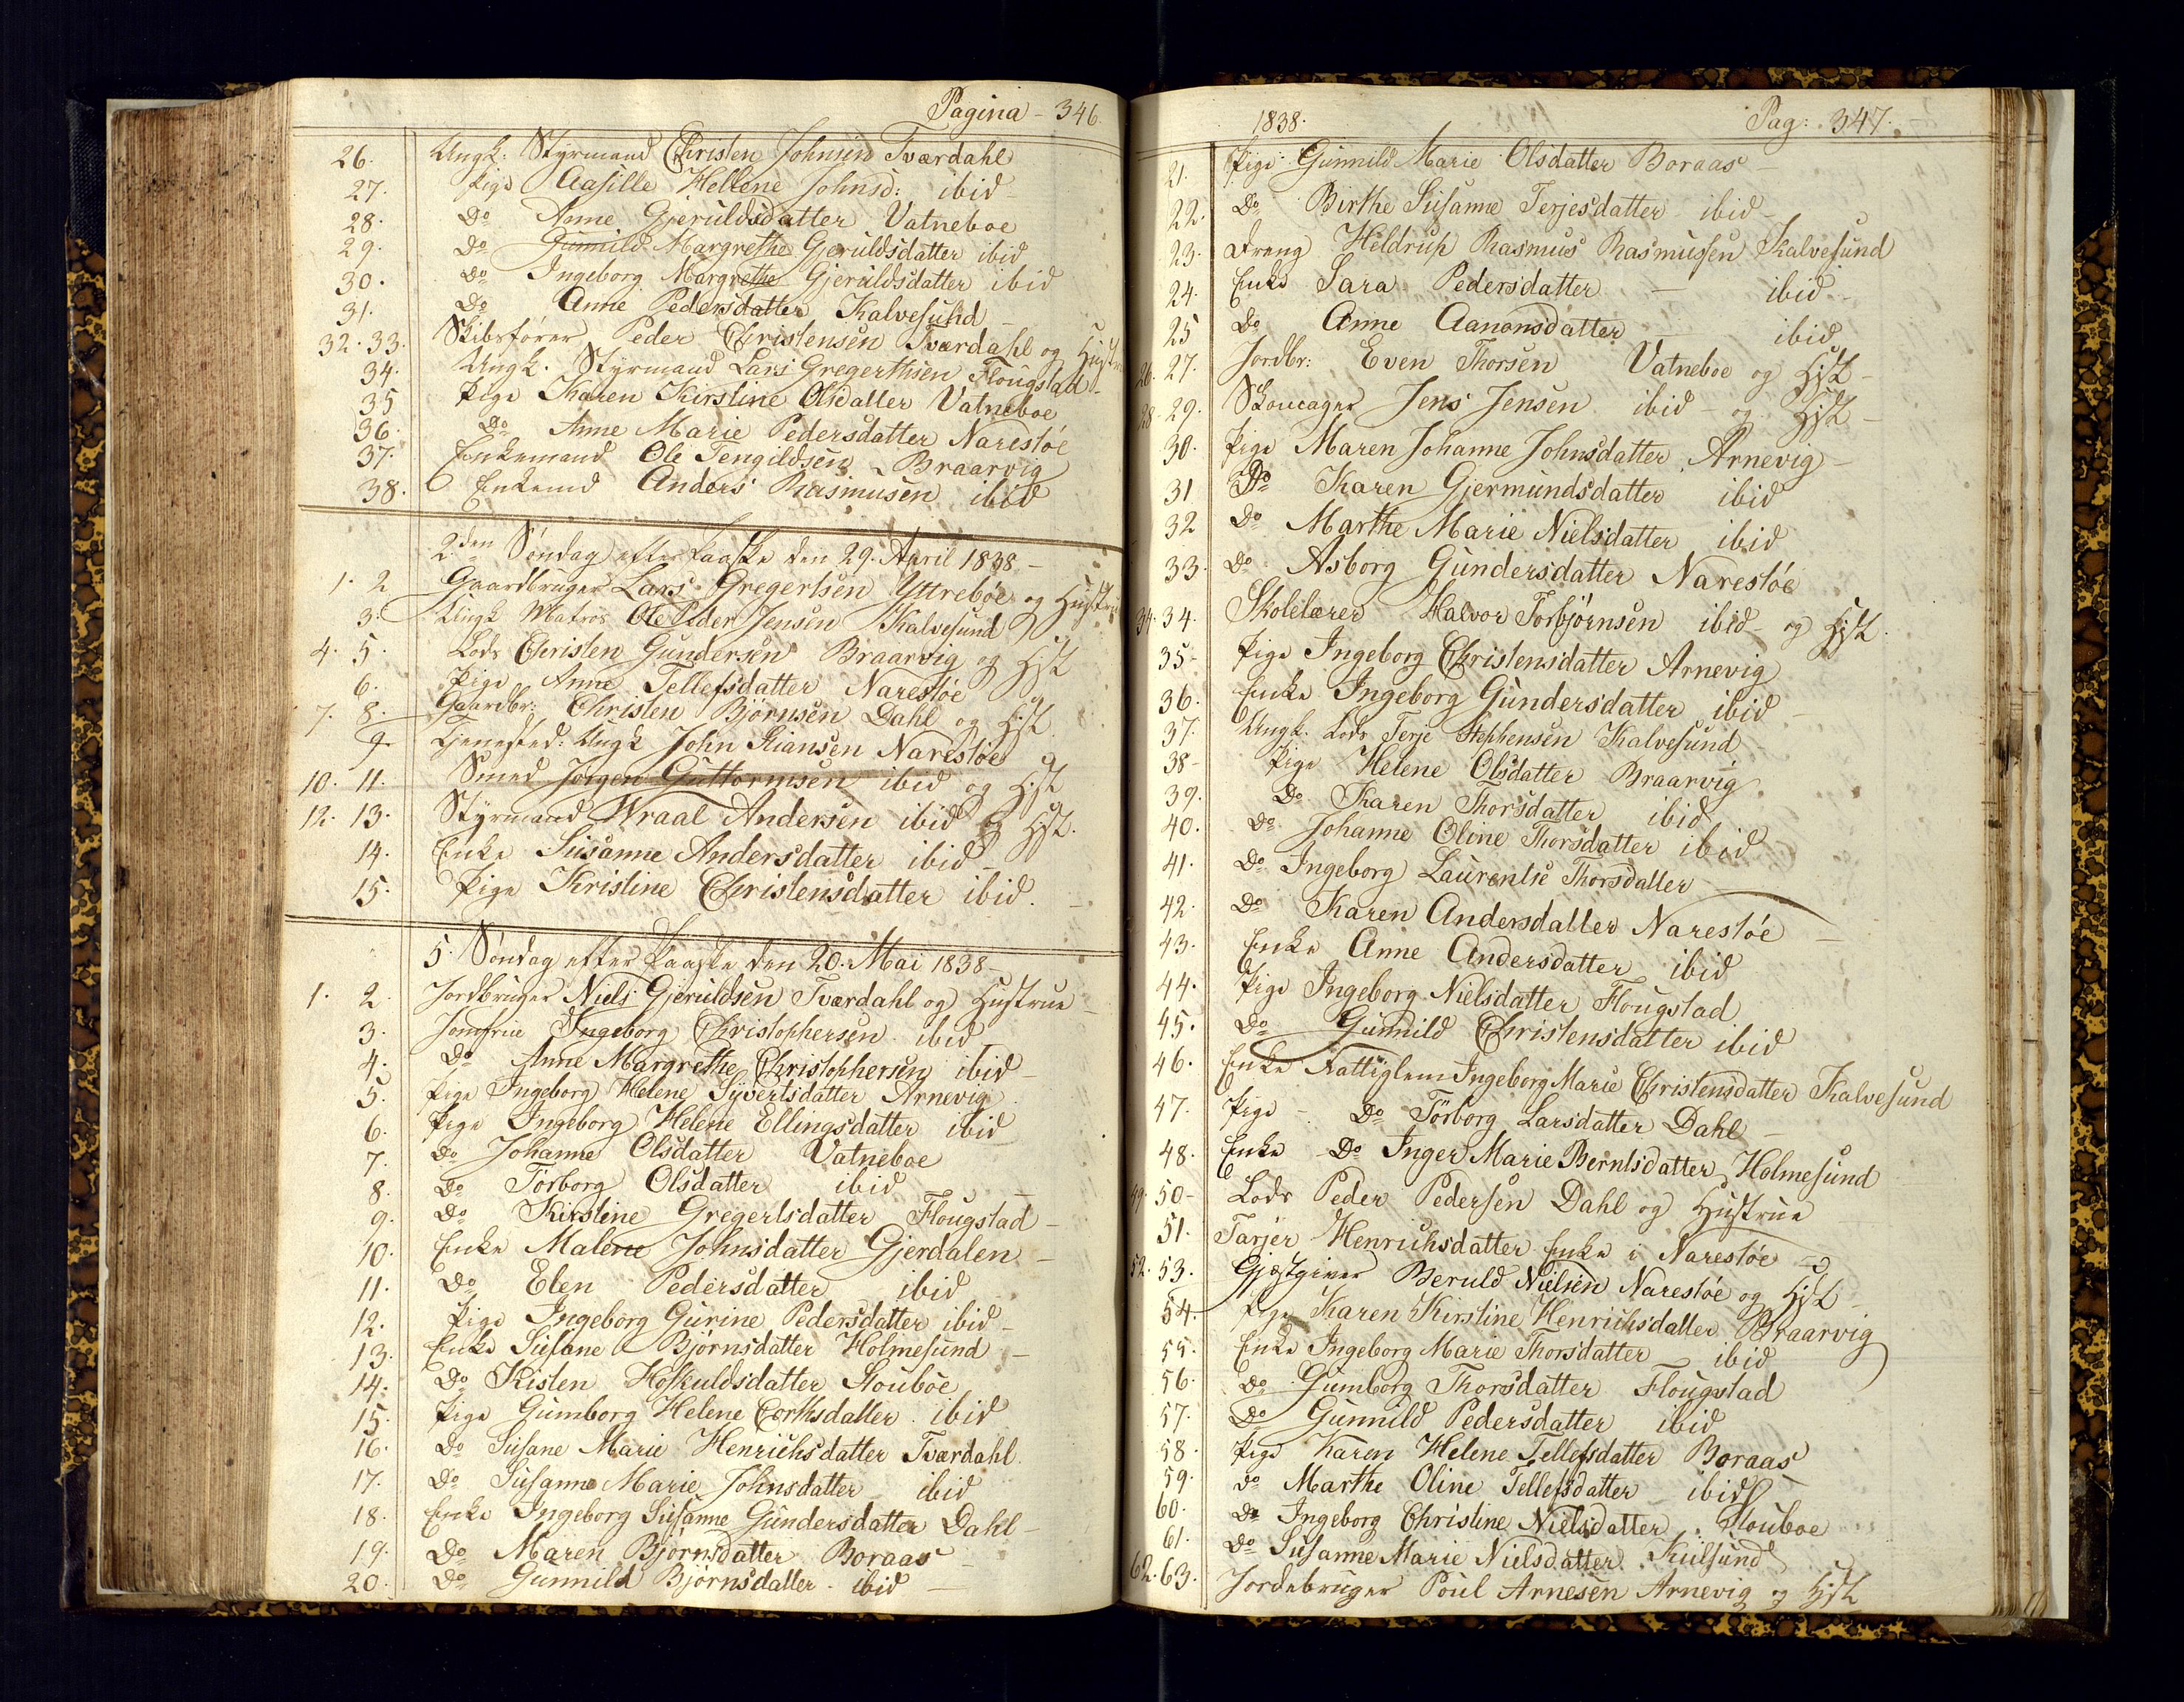 Pagina - 346.
26. Ungk: Styrmand Christen Johnsen Tværdahl
27. Pige Aasille Hellene Johnsd: ibid -
28. Do Anne Gjeruldsdatter Vatneboe
29. Do Gunnild Margrethe Gjeruldsdatter ibid
30. Do Ingeborg Margrethe Gjeruldsdatter ibid
31. Do Anne Pedersdatter Kalvesund -
32. 33. Skibsfører Peder Christensen Tværdahl og Hustrue
34. Ungk. Styrmand Lars Gregerthsen Flougstad -
35 Pige Karen Kirstine Olsdatter Vatneboe
36. Do Anne Marie Pedersdatter Narestøe
37. Enkemand Ole Tengildsen - Braarvig
38. Enkemd Anders Rasmusen ibid
2den Søndag efter Paaske den 29. April 1838 -
1. 2 Gaardbruger Lars Gregertsen Yttrebøe og Hustrue
3. Ungk Matros Ole Peder Jensen Kalvesund
4. 5. Lods Christen Gundersen Braarvig og Hst
6. Pige Anne Tellefsdatter Narestøe
7. 8. Gaardbr: Christen Bjørnsen Dahl og Hst
9. Tjenested: Ungk John Kiansen Narestøe
10. 11. Smed Jørgen Guttormsen ibid og Hst
12. 13. Styrmand Wraal Andersen ibid og Hst.
14. Enke Susanne Andersdatter ibid -
15. Pige Kristine Christensdatter ibid. -
5. Søndag efter Paaske den 20. Mai 1838 -
1. 2. Jordbruger Niels Gjeruldsen Tværdahl og Hustrue -
3. Jomfrue Ingeborg Christophersen ibid
4. Do Anne Margrethe Christophersen ibid -
5. Pige Ingeborg Helene Syvertsdatter Arnevig
6. Pige Ingeborg Helene Ellingsdatter ibid
7. Do Johanne Olsdatter Vatneboe
8. Do Torborg Olsdatter ibid -
9. Do Kirstine Gregertsdatter Flougstad -
10. Enke Malene Johnsdatter Gjerdalen -
11. Do Elen Pedersdatter ibid
12. Pige Ingeborg Gurine Pedersdatter ibid -
13. Enke Susane Bjørnsdatter Holmesund -
14. Do Kisten Hoskuldsdatter Stouboe
15. Pige Gumborg Helene Corthsdatter ibid
16. Do Susane Marie Henrichsdatter Tværdahl.
17. Do Susanne Marie Johnsdatter ibid
18. Enke Ingeborg Susanne Gundersdatter Dahl -
19. Do Maren Bjørnsdatter Boraas -
20. Do Gunnild Bjørnsdatter ibid -
1838. Pag: 347. -
21. Pige Gunnild Marie Olsdatter Boraas -
22. Do Birthe Susanne Terjesdatter ibid -
23. Dreng Heldrup Rasmus Rasmussen Kalvesund
24. Enke Sara Pedersdatter - ibid -
25 Do Anne Aanonsdatter - ibid
26. 27. Jordbr: Even Thorsen Vatneboe og Hst -
28. 29. Skomager Jens Jensen ibid - og Hst -
30. Pige Maren Johanne Johnsdatter Arnevig -
31 Do Karen Gjermundsdatter ibid
32 Do Marthe Marie Nielsdatter ibid
33. Do Asborg Gundersdatter Narestøe
34. 34. Skolelærer Halvor Torbjørnsen ibid og Hst.
35 - Pige Ingeborg Christensdatter Arnevig
36. Enke Ingeborg Gundersdatter ibid -
37. Ungk. Lods Terje Stephensen Kalvesund
38 - Pige Helene Olsdatter Braarvig
39. Do Karen Thorsdatter ibid
40. Do Johanne Oline Thorsdatter ibid
41. Do Ingeborg Laurentse Thorsdatter
42. Do Karen Andersdatter Narestøe -
43. Enke Anne Andersdatter ibid
44. Pige Ingeborg Nielsdatter Flougstad
45. Do Gunnild Christensdatter ibid
46. Enke Fattiglem Ingeborg Marie Christensdatter Kalvesund
47. Pige - Do Torborg Larsdatter Dahl -
48. Enke - Do Inger Marie Berntsdatter Holmesund
49. 50 - Lods Peder Pedersen Dahl og Hustrue
51. Tarjer Henrichsdatter Enke i Narestøe
52. 53. Gjæstgiver Beruld Nielsen Narestøe og Hst -
54. Pige Karen Kirstine Henrichsdatter Braarvig
55. Enke Ingeborg Marie Thorsdatter ibid
56. Do Gumborg Thorsdatter Flougstad
57. Do Gunnild Pedersdatter ibid
58. Pige Karen Helene Tellefsdatter Boraas
59. Do Marthe Oline Tellefsdatter ibid
60. Do Ingeborg Christine Nielsdatter Stouboe
61. Do Susanne Marie Nielsdatter Kulsund
62. 63. Jordebruger Poul Arnesen Arnevig og Hst